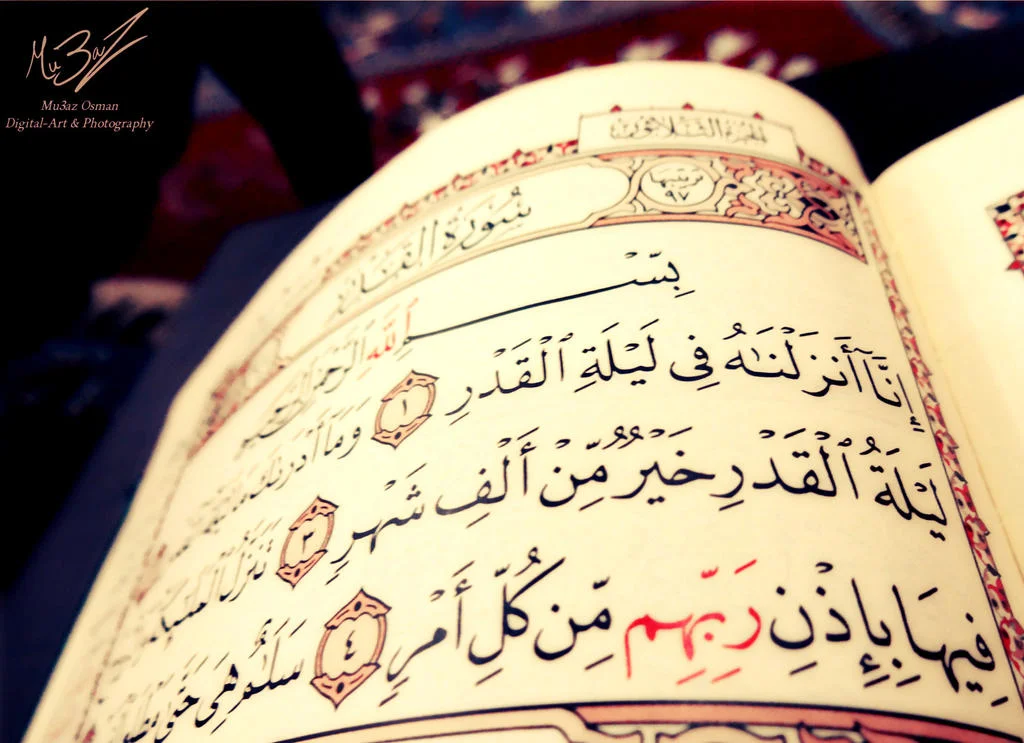 Mu3aZ
Mu3az Osman
Digital-Art & Photography
الجزء الثلاثون
سُورَةُ القَدْرِ
ترتيبها
٩٧
بِسْمِ اللَّهِ الرَّحْمَٰنِ الرَّحِيمِ
إِنَّآ أَنزَلْنَٰهُ فِى لَيْلَةِ ٱلْقَدْرِ ١ وَمَآ أَدْرَىٰكَ
لَيْلَةُ ٱلْقَدْرِ خَيْرٌ مِّنْ أَلْفِ شَهْرٍ ٣ تَنَزَّلُ ٱلْمَلَٰٓئِكَةُ
فِيهَا بِإِذْنِ رَبِّهِم مِّن كُلِّ أَمْرٍ ٤ سَلَٰمٌ هِىَ حَتَّىٰ